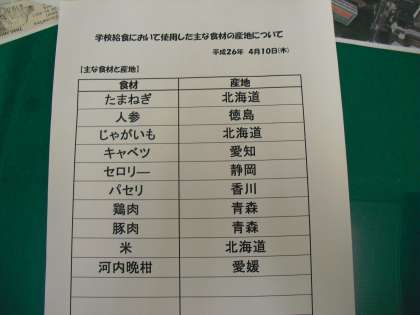 学校給食において使用した主な食材の産地について
平成26年 4月10日(木)
【主な食材と産地】
食材 産地
たまねぎ 北海道
人参 徳島
じゃがいも 北海道
キャベツ 愛知
セロリー 静岡
パセリ 香川
鶏肉 青森
豚肉 青森
米 北海道
河内晩柑 愛媛